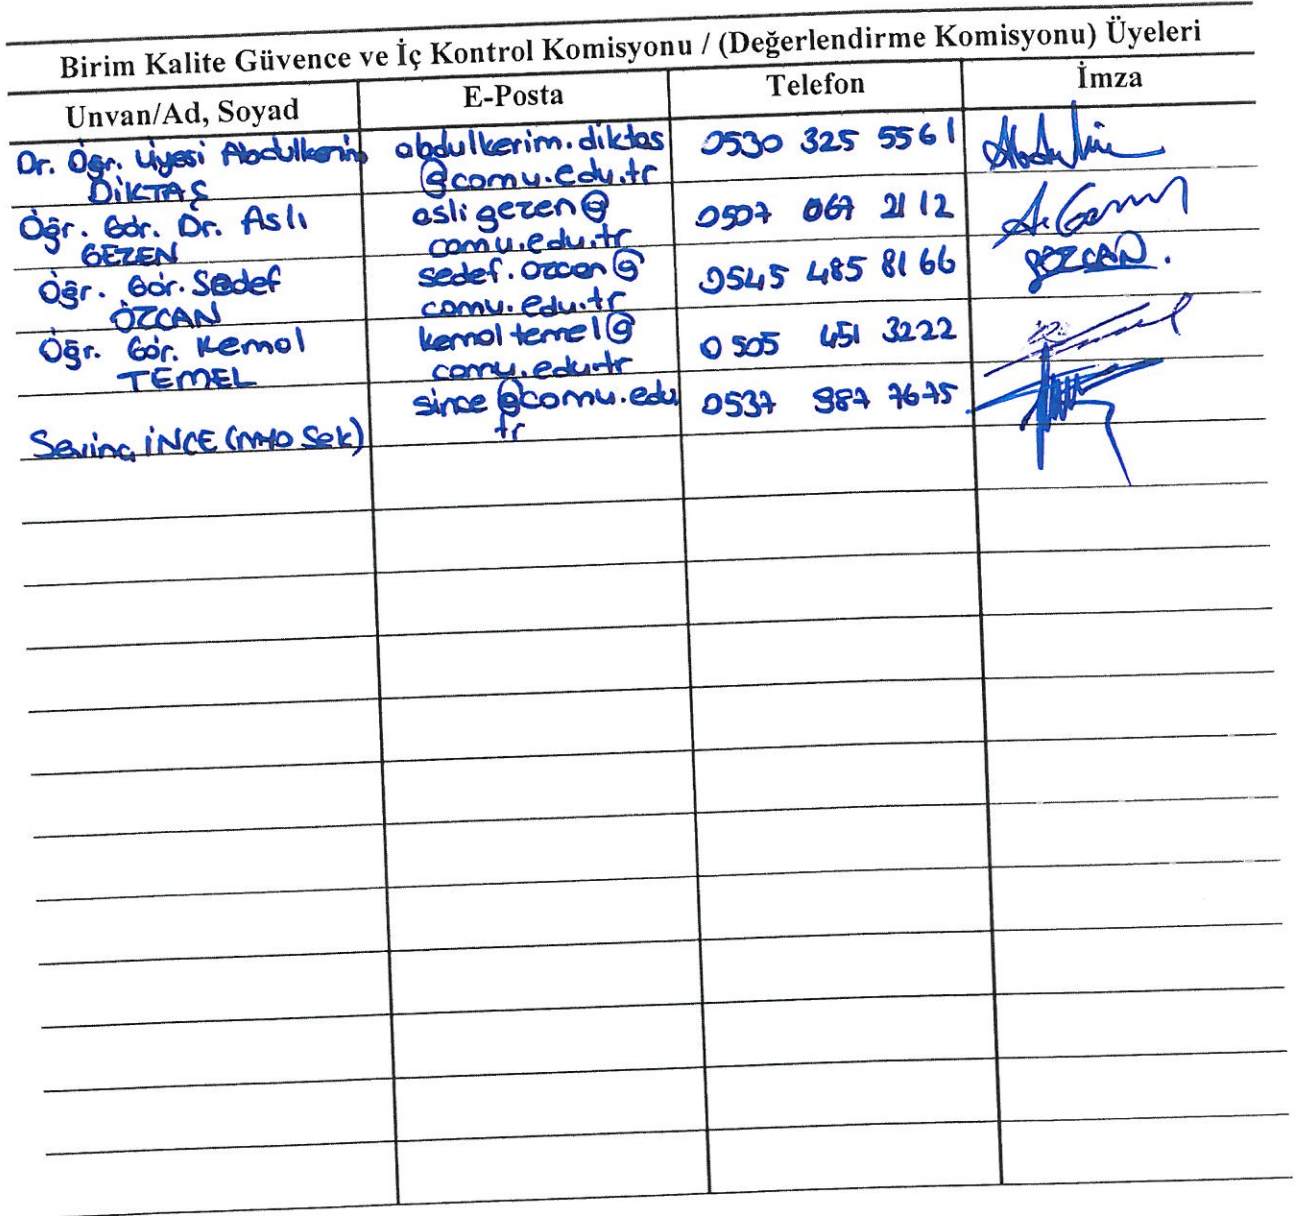 Birim Kalite Güvence ve İç Kontrol Komisyonu / (Değerlendirme Komisyonu) Üyeleri
Unvan/Ad, Soyad E-Posta Telefon İmza
Dr. Öğr. Üyesi Abdulkerim
DİKTAŞ
abdulkerim.diktas
@comu.edu.tr
0530 325 5561
Öğr. Gör. Dr. Aslı
GEZEN
asligezen@
comu.edu.tr
0507 067 2112
Öğr. Gör. Sedef
ÖZCAN
sedef.ozcan@
comu.edu.tr
0545 485 8166
SÖZCAN.
Öğr. Gör. Kemal
TEMEL
kemaltemel@
comu.edu.tr
0505 451 3222
Sevinç İNCE (MYO Sek)
since@comu.edu
tr
0537 987 7675